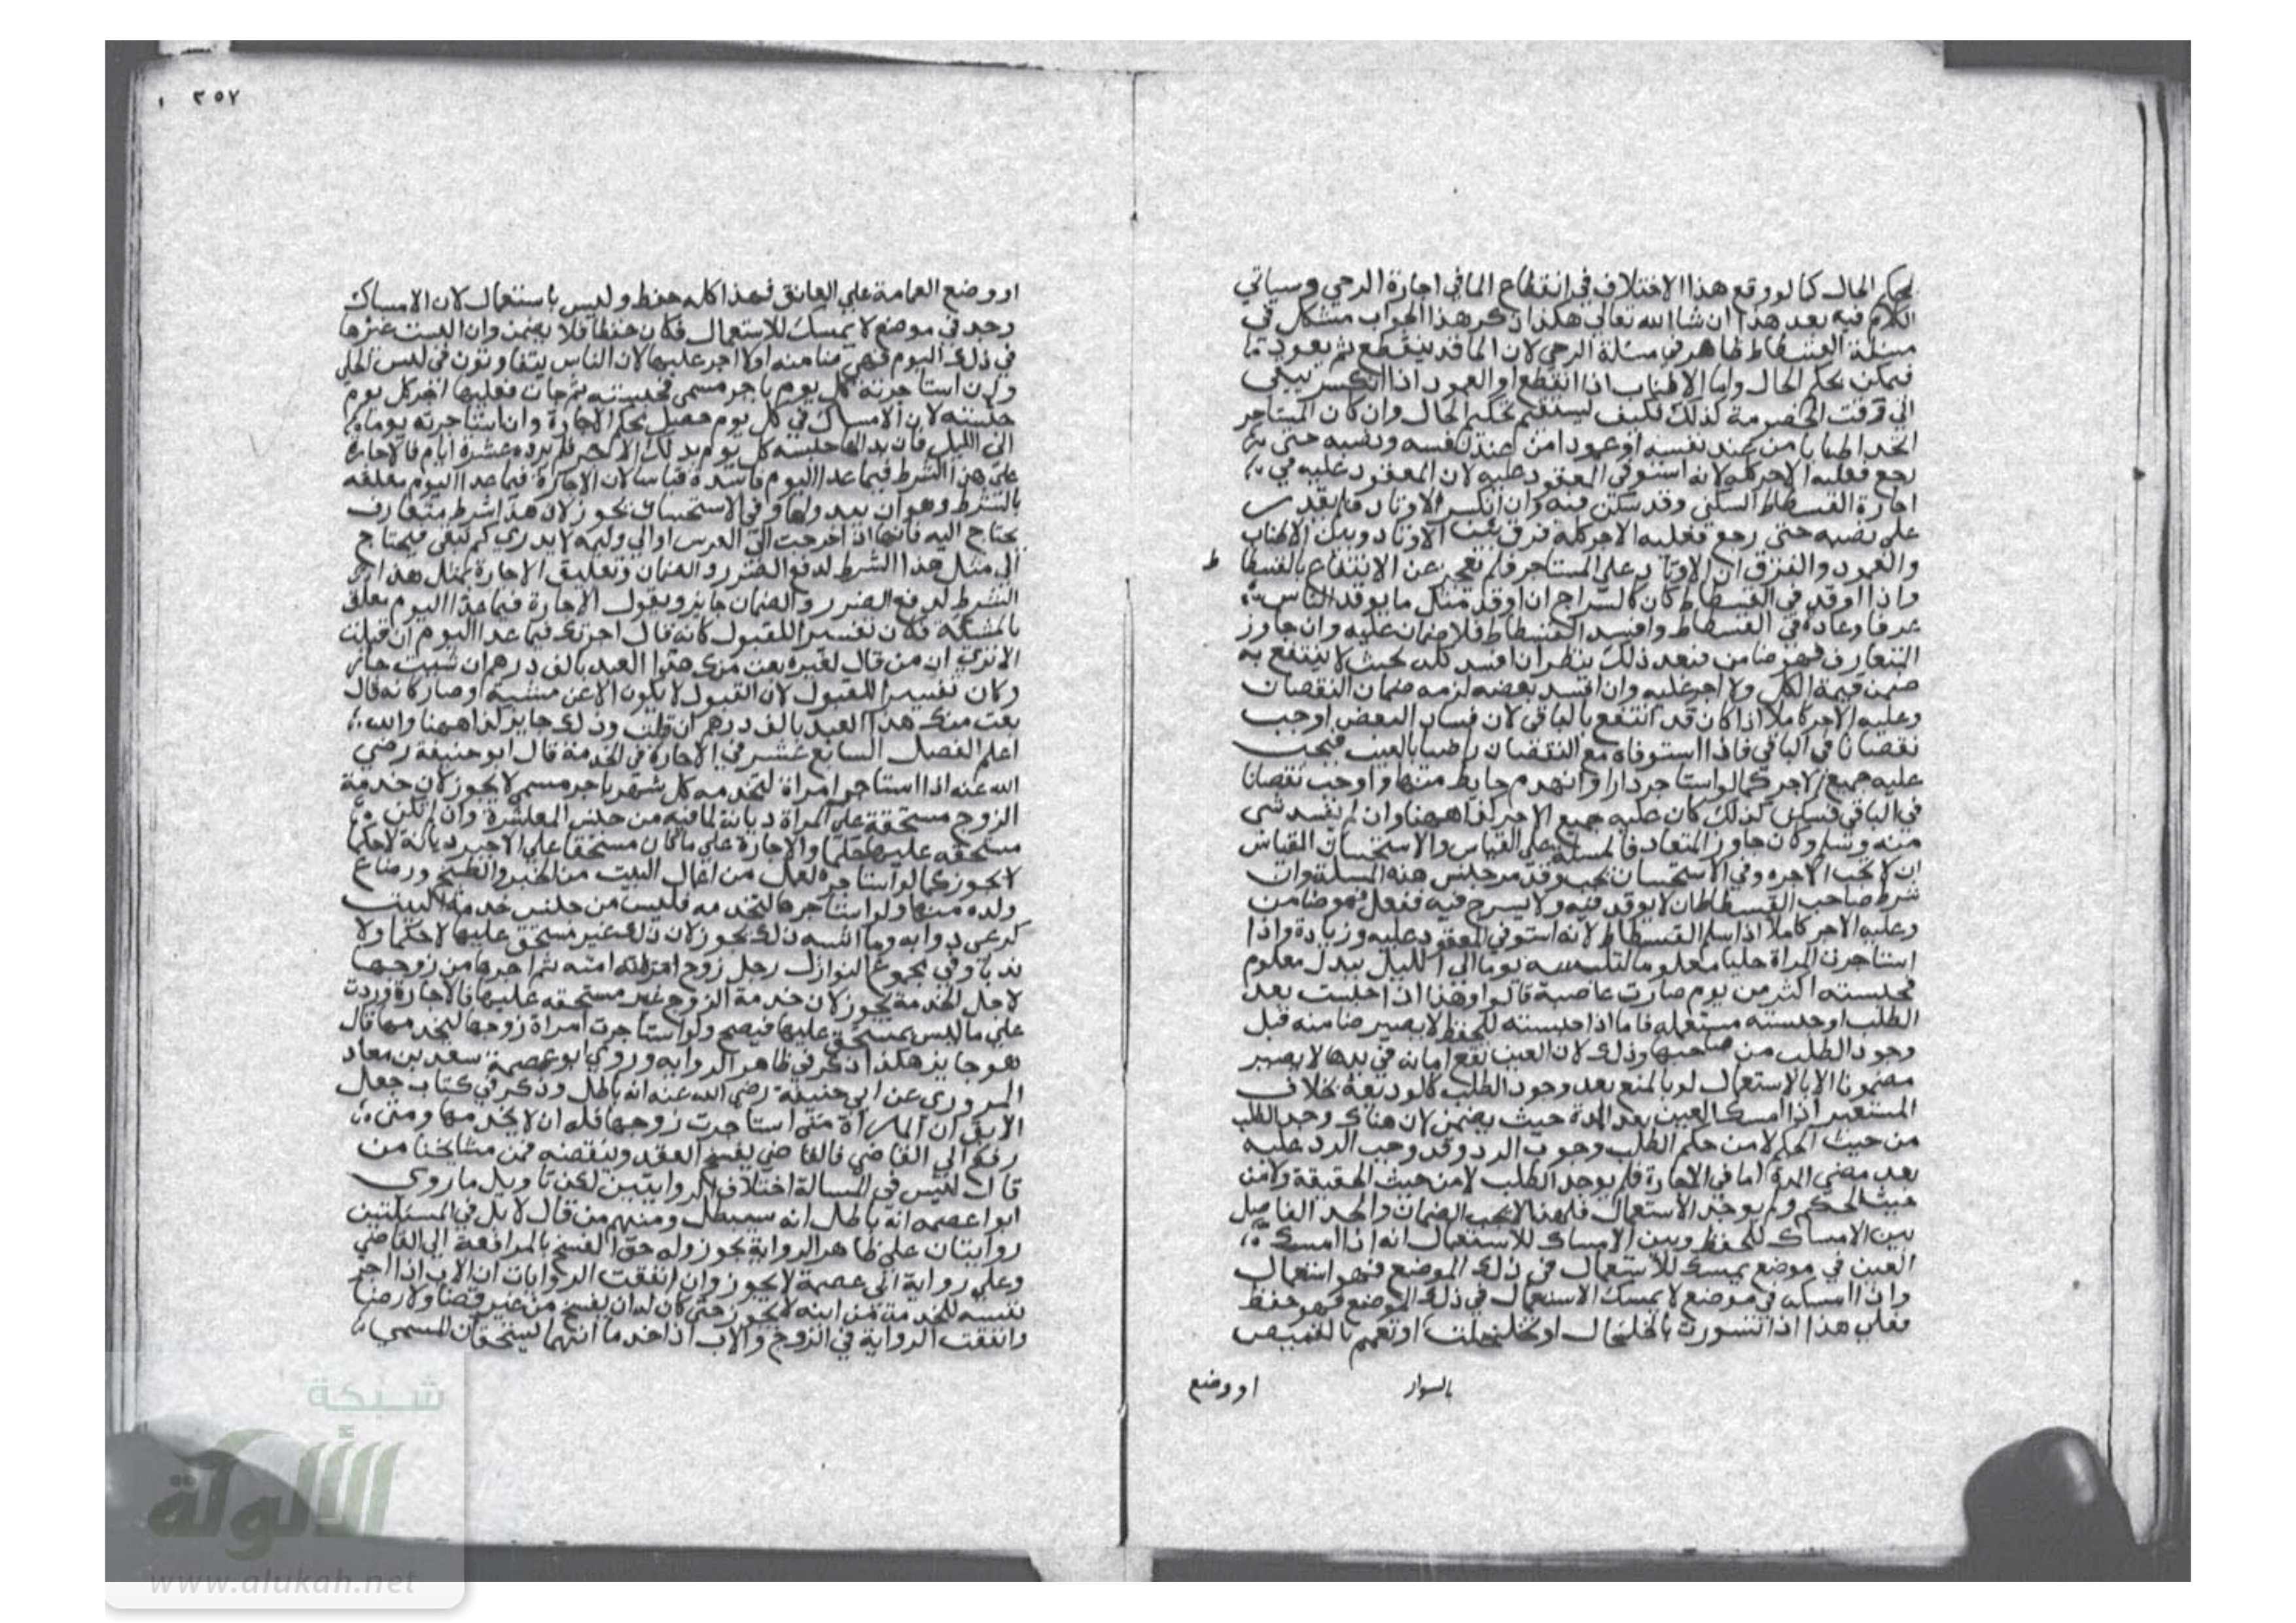 يحكم الحال كما لو وقع هذا الاختلاف في انقطاع الما في اجارة الرحي وسياتي
الكلام فيه بعد هذا ان شا الله تعالي هكذا ذكر هذا الجواب مشكل في
مسئلة الفسطاط ظاهر في مسئلة الرحي لان الما قد ينقطع ثم يعود
فيمكن تحكيم الحال واما الاطناب اذا انقطع او العمود اذا انكسر يبقي
الي وقت الخصومة كذلك فكيف يستقيم تحكيم الحال وان كان المستاجر
اتخذ اطنابا من عند نفسه او عمودا من عند نفسه ونصبه حتي
رجع فعليه الاجر كله لانه استوفي المعقود عليه لان المعقود عليه في
اجارة الفسطاط السكني وقد سكن فيه وان انكسر الاوتاد فلم يقدر
علي نصبه حتي رجع فعليه الاجر كله فرق بين الاوتاد وبين الاطناب
والعمود والفرق ان الاوتاد علي المستاجر فلم يعجز عن الانتفاع بالفسطا
ط
واذا اوقد في الفسطاط كان كالسراج ان اوقد مثل ما يوقد الناس
عرفا وعادة في الفسطاط وافسد الفسطاط فلا ضمان عليه وان جاوز
المتعارف فهو ضامن فبعد ذلك ينظر ان افسد كله بحيث لا ينتفع به
ضمن قيمة الكل ولا اجر عليه وان افسد بعضه لزمه ضمان النقصان
وعليه الاجر كاملا اذا كان قد انتفع بالباقي لان فساد البعض اوجب
نقصانا في الباقي فاذا استوفاه مع النقصان راضيا بالعيب فيجب
عليه جميع الاجر كما لو استاجر دارا وانهدم حايط منها واوجب نقصانا
في الباقي فسكن كذلك كان عليه جميع الاجر كذا ههنا وان لم يفسد شي
منه وسلم وكان جاوز المتعاد فالمسئلة علي القياس والاستحسان القياس
ان لا يجب الاجره وفي الاستحسان يجب وقد مر جنس هذه المسئلة وان
شرط صاحب الفسطاط ان لا يوقد فيه ولا يسرج فيه ففعل فهو ضامن
وعليه الاجر كاملا اذا سلم الفسطاط لانه استوفي المعقود عليه وزيادة واذا
استاجرت المراة حليا معلوما لتلبسه يوما الي الليل ببدل معلوم
فحبسته اكثر من يوم صارت غاصبة قالوا وهذا اذا حبست بعد
الطلب او حبسته مستعمله فاما اذا حبسته للحفظ لا يصير ضامنه قبل
وجود الطلب من صاحبها وذلك لان العين تقع امانه في يدها لا يصير
مضمونا الا بالاستعمال او بالمنع بعد وجود الطلب كالوديعة بخلاف
المستعير اذا امسك العين بعد المدة حيث يضمن لان هناك وجد الطلب
من حيث الحكم لا من حكم الطلب وجوب الرد وقد وجب الرد عليه
بعد مضي المدة اما في الاجارة فلم يوجد الطلب لا من حيث الحقيقة ولا من
حيث الحكم ولم يوجد الاستعمال فلهذا لا يجب الضمان والحد الفاصل
بين الامساك للحفظ وبين الامساك للاستعمال انه اذا امسك
العين في موضع يمسك للاستعمال في ذلك الموضع فهو استعمال
واذا امسك في موضع لا يمسك الاستعمال في ذلك الموضع فهو حفظ
فعلي هذا اذا تسورت بالخلخال او تخلخلت او تعمم بالقميص
بالسوار
او وضع
٢٥٧
او وضع العمامة علي العاتق فهذا كله حفظ وليس باستعمال لان الامساك
وجد في موضع لا يمسك للاستعمال فكان حفظا فلا يضمن وان البست غيرها
في ذلك اليوم فهي ضامنه ولا اجر عليها لان الناس يتفاوتون في لبس الحلي
وان استاجرته كل يوم باجر مسمي فحبسته ثم جات فعليها اجر كل يوم
حبسته لان الامساك في كل يوم حصل بحكم الاجارة وان استاجرته يوما
الي الليل فان بدالها حبسه كل يوم بذلك الاجر فلم يرده عشرة ايام فالاجارة
علي هذا الشرط فيما عدا اليوم فاسدة قياسا لان الاجارة فيما عدا اليوم معلقه
بالشرط وهو ان يبدولها وفي الاستحسان يجوز لان هذا شرط متعارف
يحتاج اليه فانها اذا خرجت الي العرس او الي وليمه لا يدري كم تبقي فيحتاج
الي مثل هذا الشرط لدفع الضرر والضمان وتعليق الاجارة بمثل هذا
الشرط لدفع الضرر والضمان جايز ويقول الاجارة فيما عدا اليوم معلق
بالمشيئة فكان تفسيرا للقبول كانه قال اجرتك فيما عدا اليوم ان قبلت
الا تري ان من قال لغيره بعت منك هذا العبد بالف درهم ان شيت جاز
وكان تفسيرا للقبول لان القبول لا يكون الا عن مشيئة وصار كانه قال
بعت منك هذا العبد بالف درهم ان قبلت وذلك جايز كذا ههنا والله
اعلم الفصل السابع عشر في الاجارة في الخدمة قال ابو حنيفة رضي
الله عنه اذا استاجر امراة لتخدمه كل شهر باجر مسمي لا يجوز لان خدمة
الزوج مستحقة علي المراة ديانة لما فيه من حسن المعاشرة وان لم تكن
مستحقه عليها حكما والاجارة علي ما كان مستحقا علي الاجير ديانة لا حكما
لا يجوز كما لو استاجره لعمل من اعمال البيت من الخبز والطبخ ورضاع
ولده منها ولو استاجرها لتخدمه فليس من جنس خدمة البيت
كرعي دوابه وما اشبه ذلك يجوز لان ذلك غير مستحق عليها لا حكما ولا
ندبا وفي مجموع النوازل رجل زوج امته ثم اجرها من زوجها
لاجل الخدمة يجوز لان خدمة الزوج غير مستحقه عليها فالاجارة وردت
علي ما ليس بمستحق عليها فيصح ولو استاجرت امراة زوجها ليخدمها قال
هو جايز هكذا ذكر في ظاهر الروايه وروي ابو عصمة سعد بن معاد
المروزي عن ابي حنيفة رضي الله عنه انه باطل وذكر في كتاب جعل
الابق ان المراة متي استاجرت زوجها فله ان لا يخدمها ومتي
رفع الي القاضي فالقاضي يفسخ العقد وينقضه فمن مشايخنا من
قال ليس في المسالة اختلاف الروايتين لكن تاويل ما روي
ابوا عصمه انه باطل انه سيبطل ومنهم من قال لا بل في المسئلتين
روايتان علي ظاهر الرواية يجوز وله حق الفسخ بالمرافعة الي القاضي
وعلي رواية ابي عصمة لا يجوز وان اتفقت الروايات ان الاب اذا اجر
نفسه للخدمة من ابنه لا يجوز حتي كان له ان يفسخ من غير قضا ولا رضا
واتفقت الرواية في الزوج والاب اذا خدما انهما يستحقان المسمي
شبكة
الألوكة
www.alukah.net